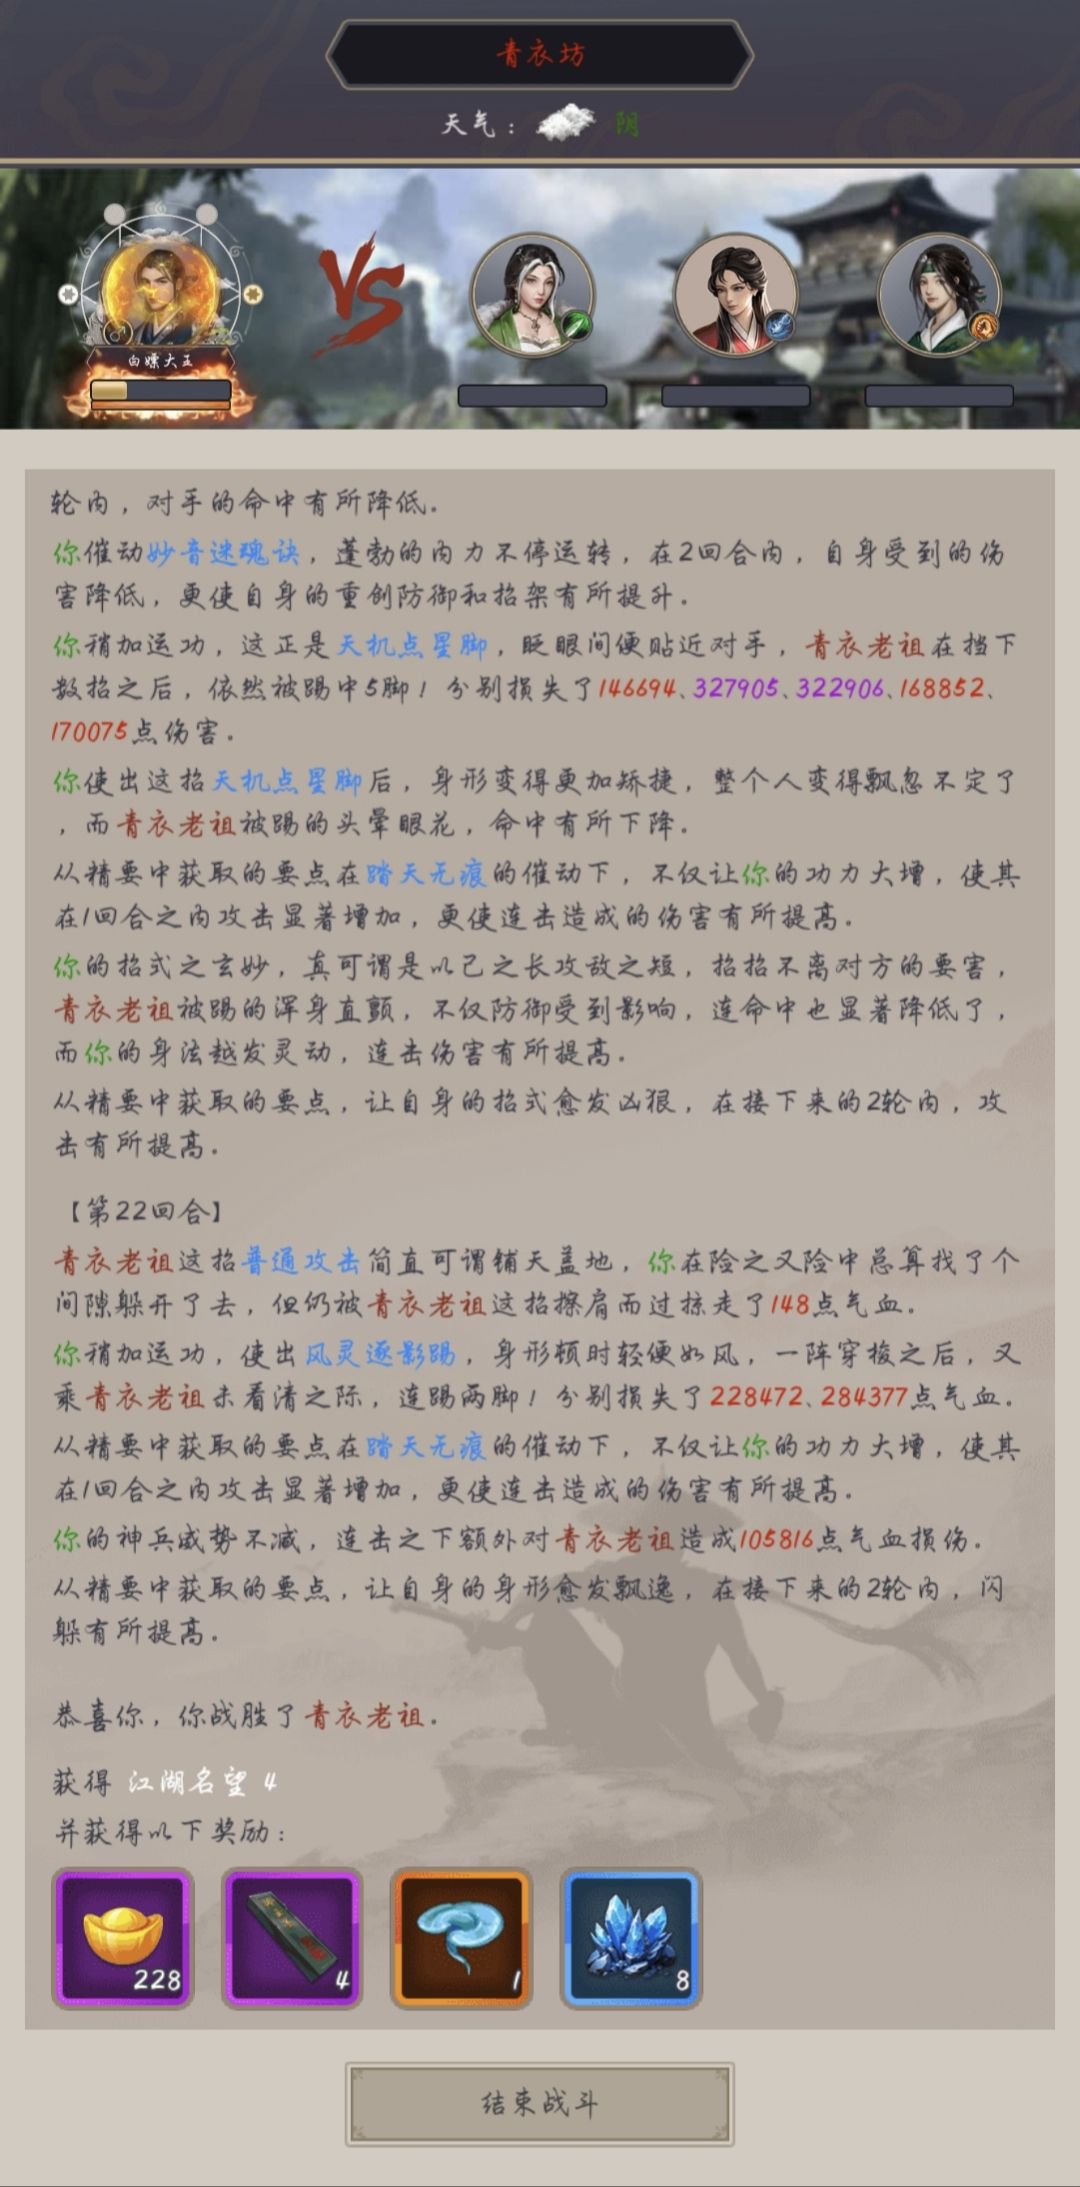 青衣坊
天气： 阴
白嫖大王
VS
轮内，对手的命中有所降低。
你催动妙音迷魂诀，蓬勃的内力不停运转，在2回合内，自身受到的伤
害降低，更使自身的重创防御和招架有所提升。
你稍加运功，这正是天机点星脚，眨眼间便贴近对手，青衣老祖在挡下
数招之后，依然被踢中5脚！分别损失了146694、327905、322906、168852、
170075点伤害。
你使出这招天机点星脚后，身形变得更加矫捷，整个人变得飘忽不定了
，而青衣老祖被踢的头晕眼花，命中有所下降。
从精要中获取的要点在踏天无痕的催动下，不仅让你的功力大增，使其
在1回合之内攻击显著增加，更使连击造成的伤害有所提高。
你的招式之玄妙，真可谓是以己之长攻敌之短，招招不离对方的要害，
青衣老祖被踢的浑身直颤，不仅防御受到影响，连命中也显著降低了，
而你的身法越发灵动，连击伤害有所提高。
从精要中获取的要点，让自身的招式愈发凶狠，在接下来的2轮内，攻
击有所提高。
【第22回合】
青衣老祖这招普通攻击简直可谓铺天盖地，你在险之又险中总算找了个
间隙躲开了去，但仍被青衣老祖这招擦肩而过掠走了148点气血。
你稍加运功，使出风灵逐影踢，身形顿时轻便如风，一阵穿梭之后，又
乘青衣老祖未看清之际，连踢两脚！分别损失了228472、284377点气血。
从精要中获取的要点在踏天无痕的催动下，不仅让你的功力大增，使其
在1回合之内攻击显著增加，更使连击造成的伤害有所提高。
你的神兵威势不减，连击之下额外对青衣老祖造成105816点气血损伤。
从精要中获取的要点，让自身的身形愈发飘逸，在接下来的2轮内，闪
躲有所提高。
恭喜你，你战胜了青衣老祖。
获得 江湖名望 4
并获得以下奖励：
228 4 1 8
结束战斗